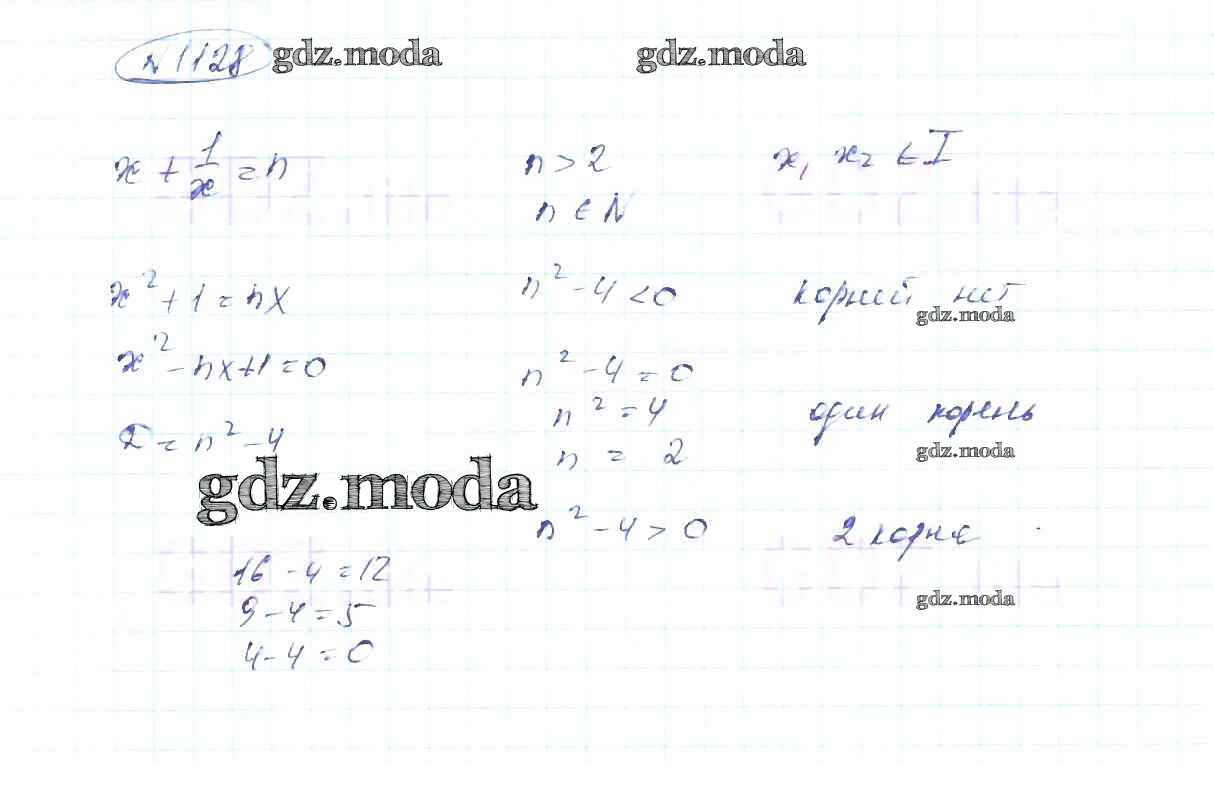 № 1128 gdz.moda gdz.moda
x + 1/x = n n > 2 x₁ x₂ ∈ I
n ∈ N
x² + 1 = nx n² - 4 < 0 корний нет
gdz.moda
x² - nx + 1 = 0 n² - 4 = 0
n² = 4 один корень
D = n² - 4 n = 2 gdz.moda
gdz.moda
n² - 4 > 0 2 корня
16 - 4 = 12
9 - 4 = 5 gdz.moda
4 - 4 = 0